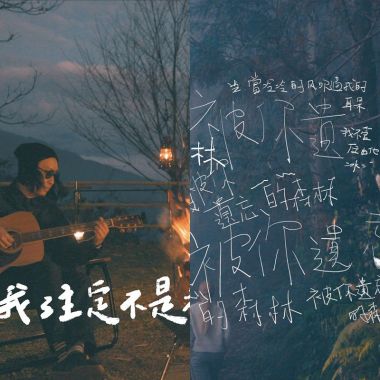 我注定不是
當冷冷的風吹過我的
耳朵
被你遺
林
被你
遺忘的森林
被你遺
的森林
被你遺忘
的森